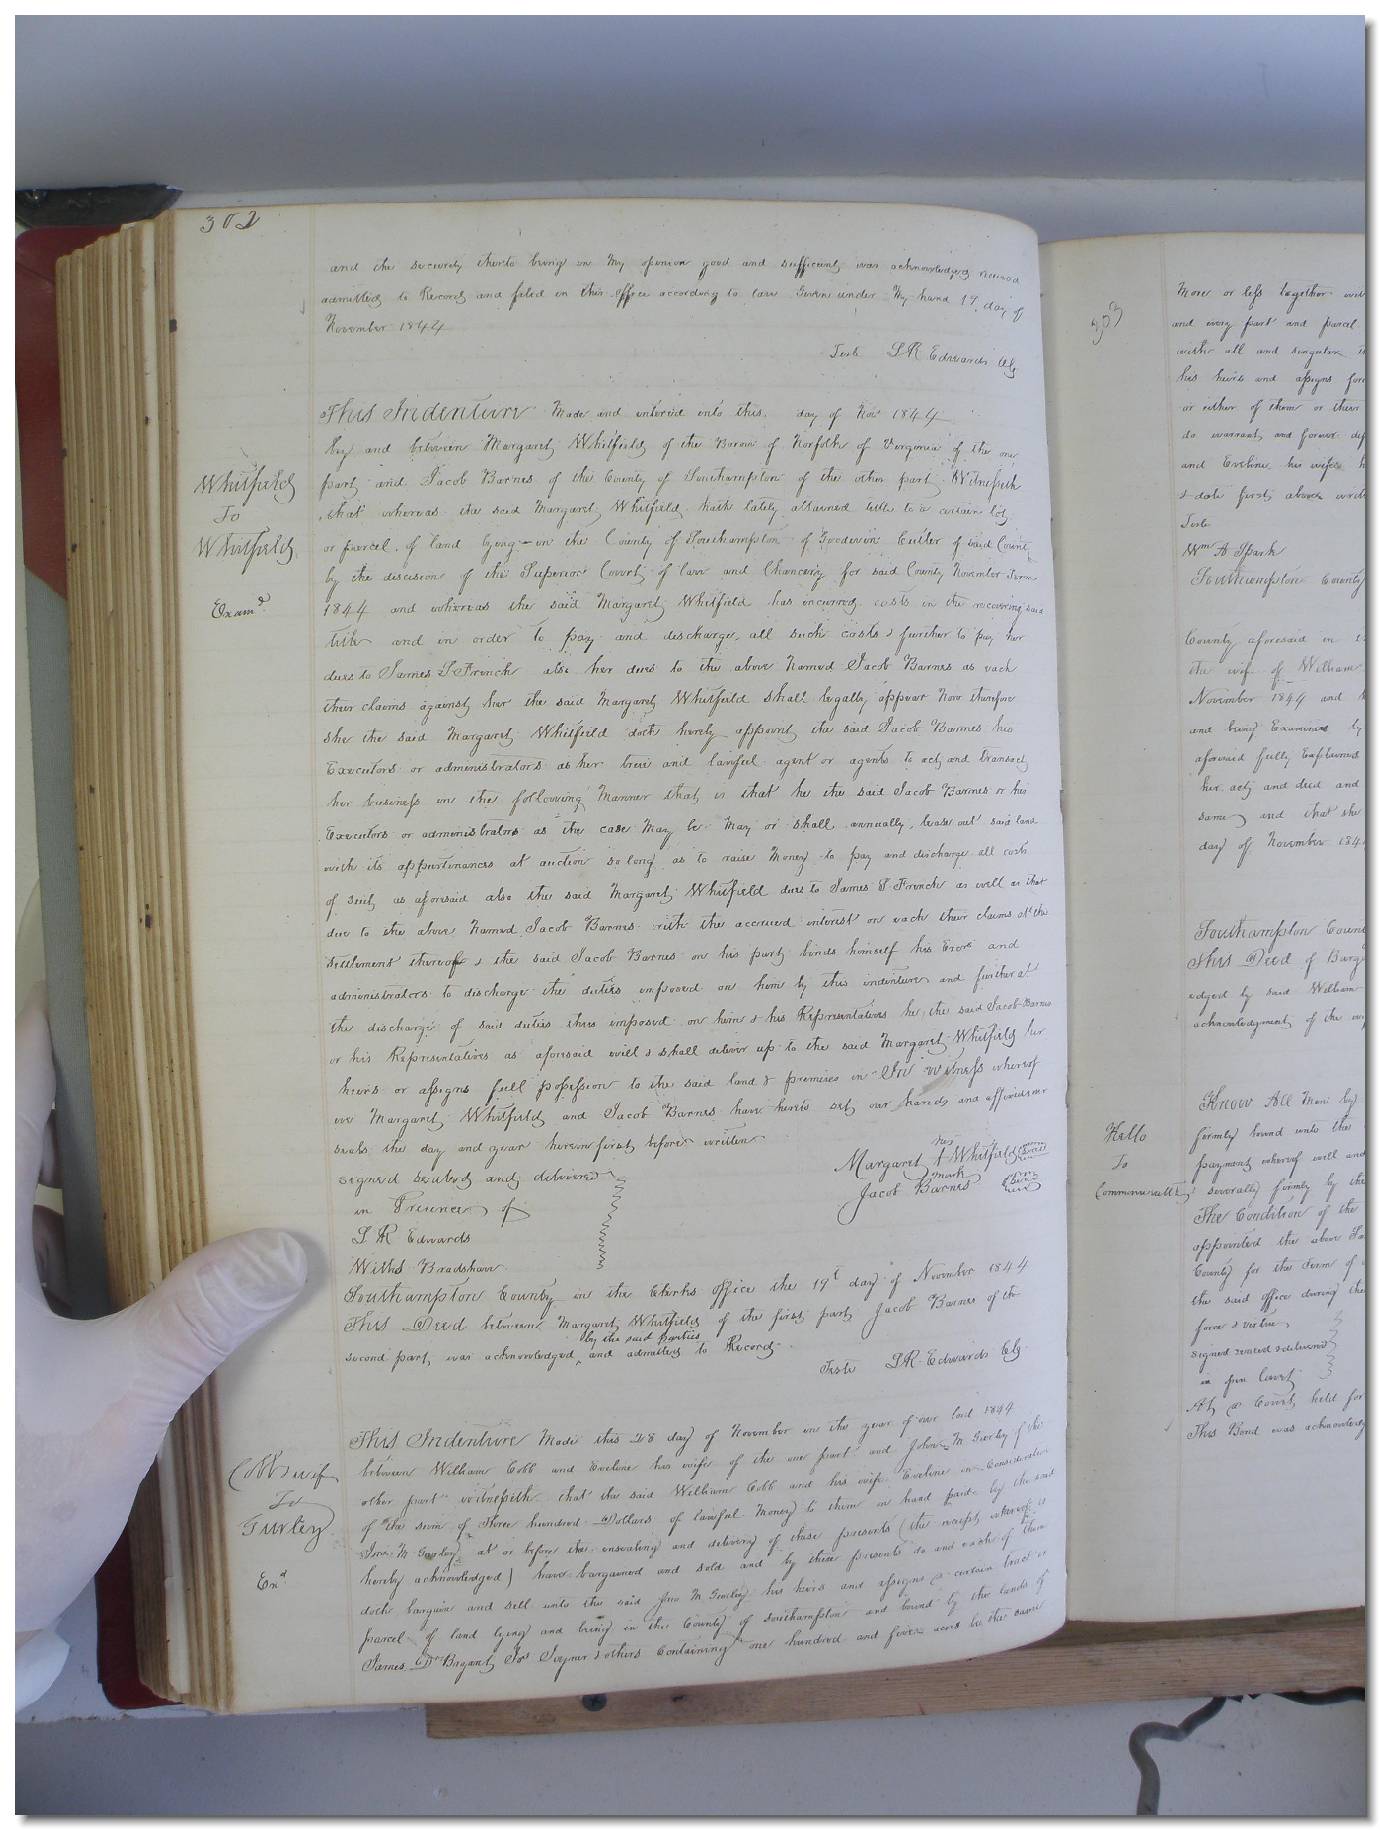 302
and the security thereto being in my opinion good and sufficient was acknowledged received
admitted to Record and filed in this office according to law Given under My hand 19 day of
November 1844
Teste L R Edwards Clg
Whitfield
To
Whitfield
Examd
This Indenture Made and entered into this day of Nov 1844
by and between Margaret Whitfield of the Borow of Norfolk of Virginia of the one
part and Jacob Barnes of the County of Southampton of the other part Witnesseth
that whereas the said Margaret Whitfield hath lately attained title to a certain lot
or parcel of land lying in the County of Southampton of said County
by the decision of the Superior Court of law and Chancery for said County November Term
1844 and whereas the said Margaret Whitfield has incurred costs in the recovering said
title and in order to pay and discharge all such costs & further to pay her
dues to James S French also her dues to the above Named Jacob Barnes as each
their claims against her the said Margaret Whitfield shall legally appear Now therefore
she the said Margaret Whitfield doth hereby appoint the said Jacob Barnes his
Executors or administrators as her true and lawful agent or agents to act and Transact
her business in the following Manner that is that he the said Jacob Barnes or his
Executors or administrators as the case May be May or shall annually lease out said land
with its appurtenances at auction so long as to raise Money to pay and discharge all costs
of suit as aforesaid also the said Margaret Whitfield due to James S French as well as that
due to the above Named Jacob Barnes with the accrued interest on each their claims at the
settlement thereof & the said Jacob Barnes on his part binds himself his Exors and
administrators to discharge the duties imposed on him by this indenture and further at
the discharge of said duties thus imposed on him & his Representatives he the said Jacob Barnes
or his Representatives as aforesaid will & shall deliver up to the said Margaret Whitfield her
heirs or assigns full possession to the said land & premises in In witness whereof
we Margaret Whitfield and Jacob Barnes have herein set our hands and affixed our
seals the day and year herein first before written
signed sealed and delivered
in Presence of
L R Edwards
Bradshaw
her
Margaret + Whitfield
mark
Jacob Barnes
Southampton County in the Clerks office the 19t day of November 1844
This Deed between Margaret Whitfield of the first part Jacob Barnes of the
by the said parties
second part was acknowledged and admitted to Record
Teste L R Edwards Clg
Cobb & wife
To
Gurley
Exd
This Indenture Made this 18 day of November in the year of our lord 1844
between William Cobb and Eveline his wife of the one part and John M Gurley of the
other part witnesseth that the said William Cobb and his wife Eveline in Consideration
of the sum of Three hundred Dollars of lawful Money to them in hand paid by the said
Jno M Gurley at or before the ensealing and delivery of these presents (the receipt whereof is
hereby acknowledged) have bargained and sold and by these presents do and each of them
doth bargain and sell unto the said Jno M Gurley his heirs and assigns a certain tract or
parcel of land lying and being in the County of Southampton and bound by the lands of
James Bryant Jos Joyner & others Containing one hundred and five acres be the same
303
More or less together
and every part and parcel
with all and singular
his heirs and assigns
or either of them or their
do warrant and forever
and Eveline his wife
& date first above
Teste
Wm A Spark
Southampton County
County aforesaid in
the wife of William
November 1844 and
and being Examined
aforesaid fully Explained
her act and deed and
same and that she
day of November 184
Southampton County
This Deed of
edged by said William
acknowledgment of the
Kello
To
Commonwealth
Know All Men by
firmly bound unto the
payment whereof well and
severally firmly by
The Condition of the
appointed the above
County for the Term of
the said office during the
force & virtue
signed sealed & delivered
in open Court
At a Court held for
This Bond was